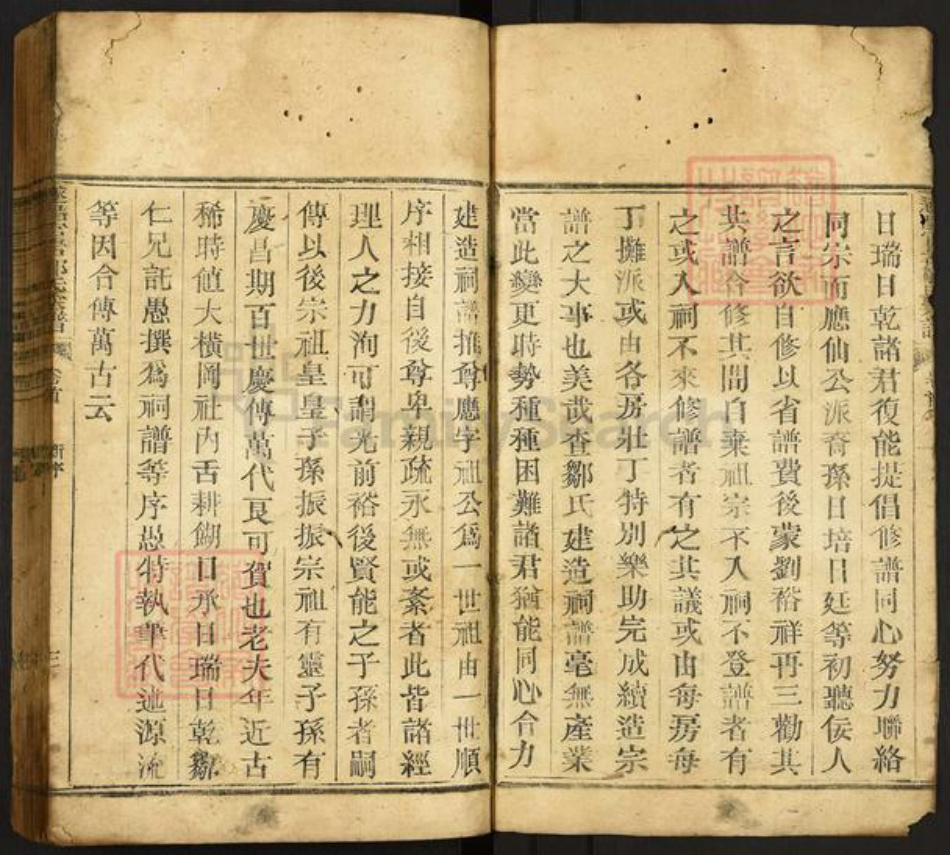 日瑞日乾諸君復能提倡修譜同心努力聯絡
同宗而應仙公派裔孫日培日廷等初聽佞人
之言欲自修以省譜費後蒙劉裕祥再三勸其
共譜合修其間自棄祖宗不入祠不登譜者有
之或入祠不來修譜者有之其議或由每房每
丁攤派或由各房壯丁特別樂助完成續造宗
譜之大事也美哉查鄒氏建造祠譜毫無產業
當此變更時勢種種困難諸君猶能同心合力
建造祠譜推尊應字祖公爲一世祖由一世順
序相接自後尊卑親疏永無或紊者此皆諸經
理人之力洵可謂光前裕後賢能之子孫者嗣
傳以後宗祖皇皇子孫振振宗祖有靈子孫有
慶昌期百世慶傳萬代良可賀也老夫年近古
稀時値大橫岡社內舌耕餬口承日瑞日乾鄒
仁兄託愚撰爲祠譜等序愚特執筆代述源流
等因合傳萬古云
三
FamilySearch